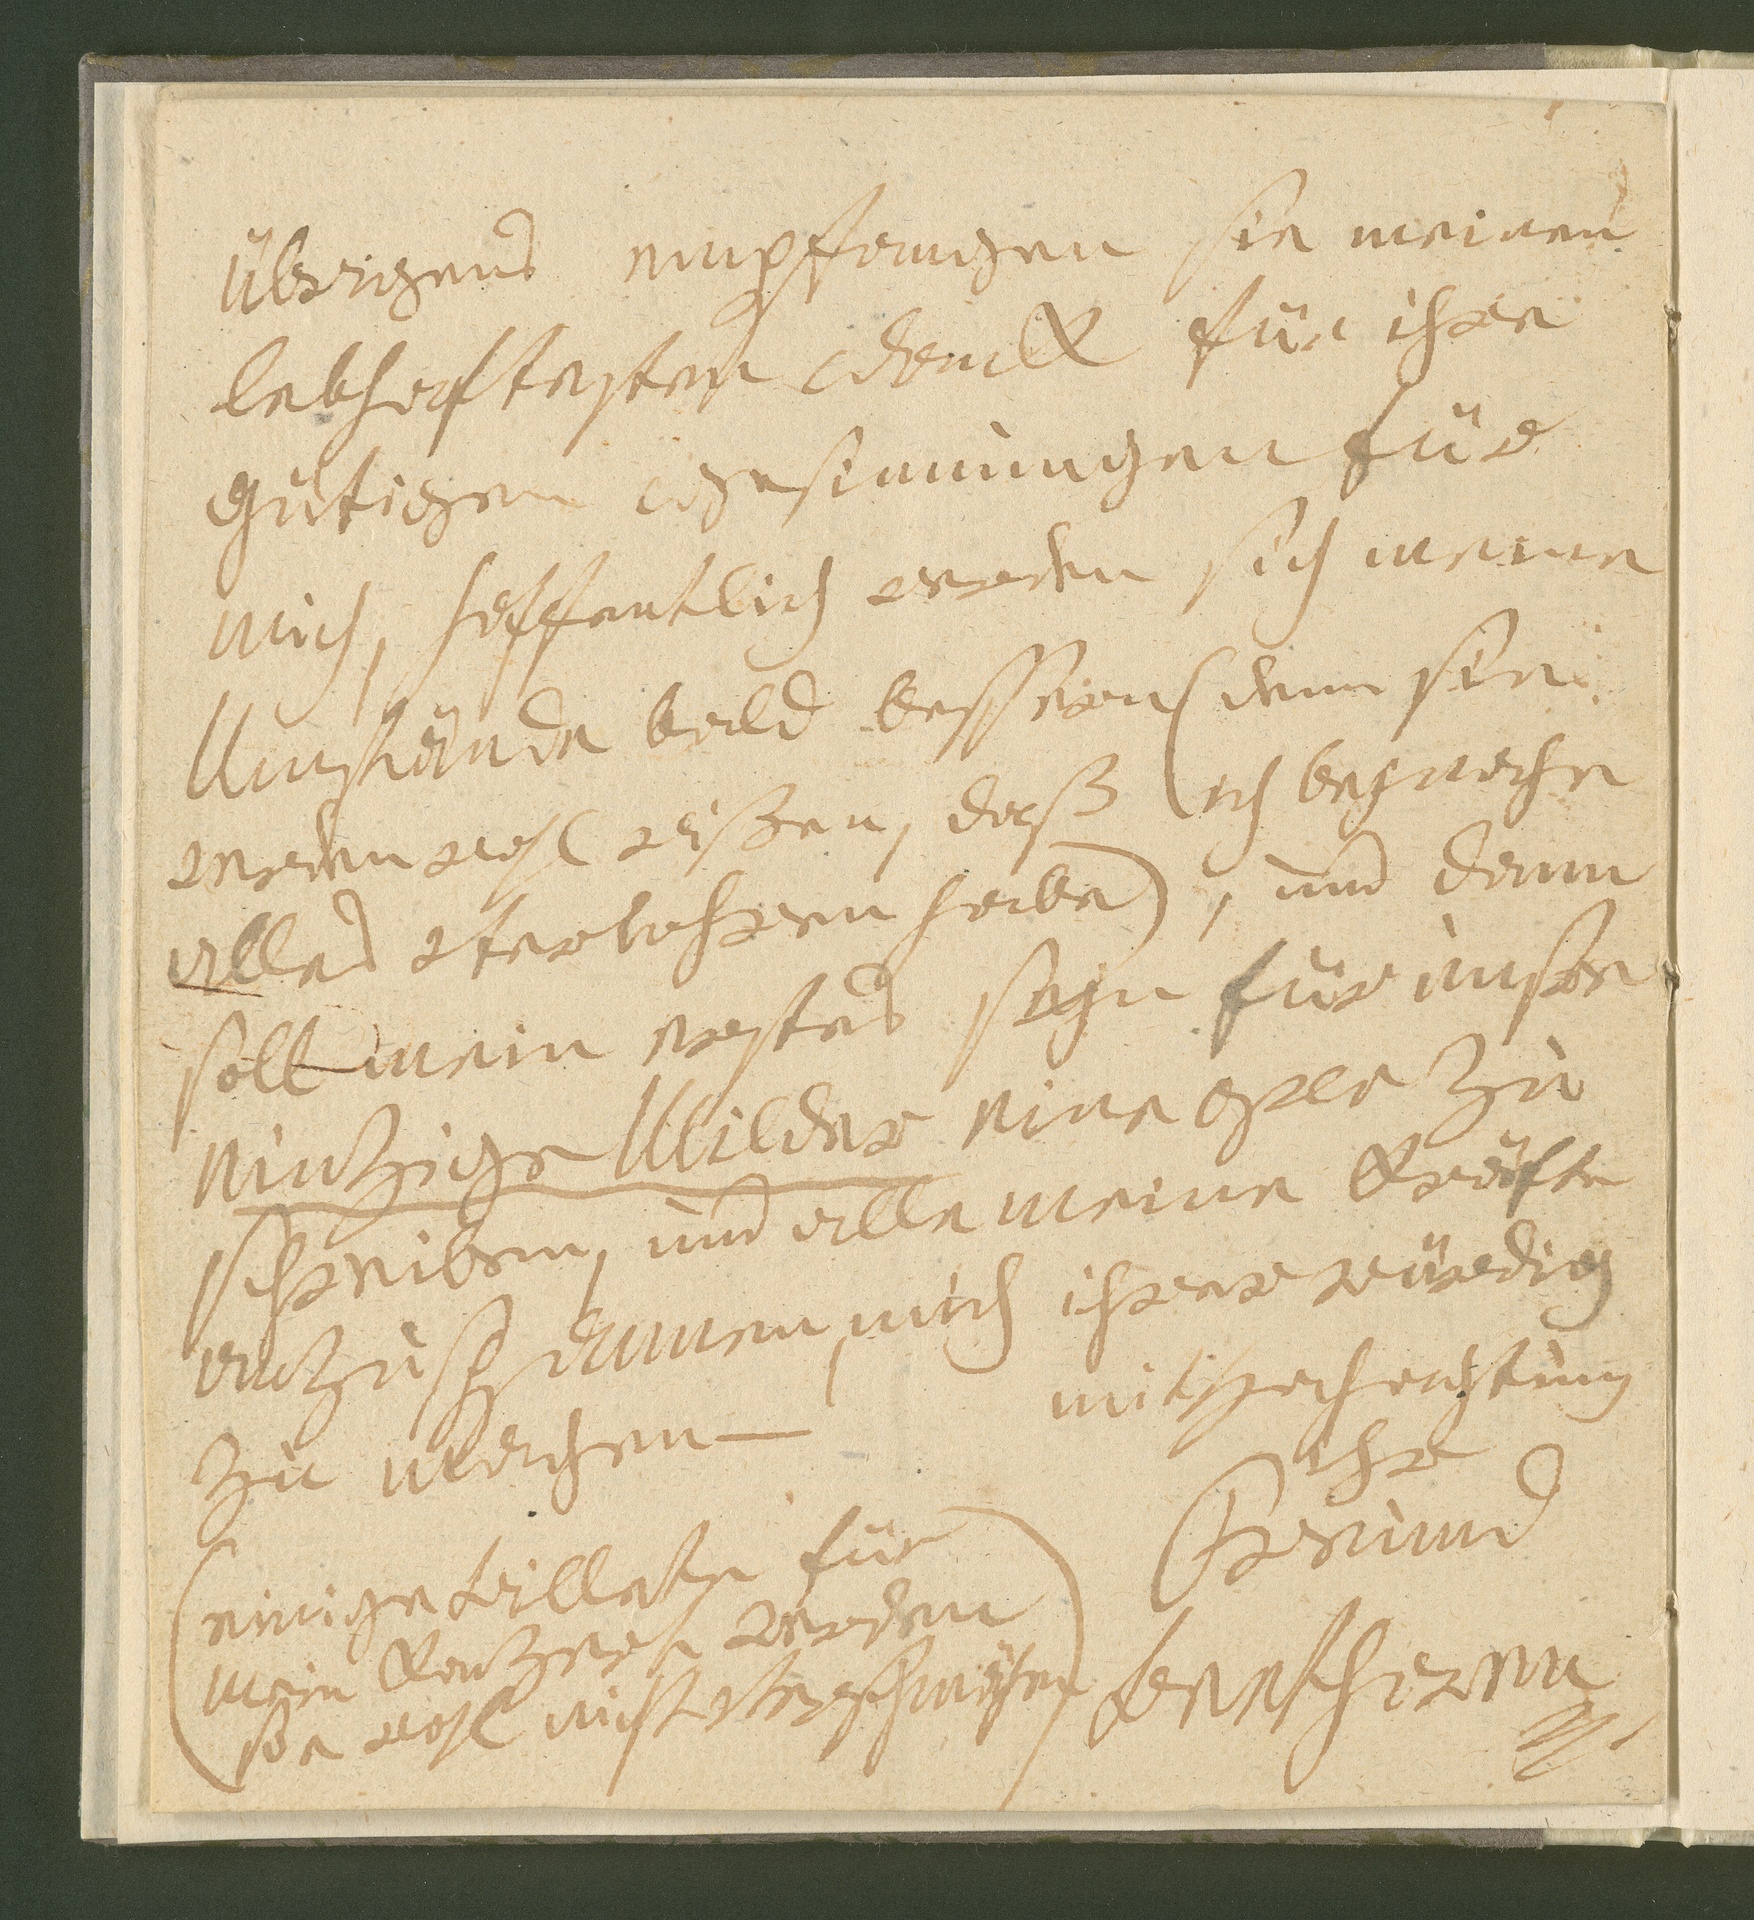 übrigens empfangen sie meinen
lebhaftesten Dank für ihre
gütigen Gesinnungen für
mich, hoffentlich werden sich meine
Umstände bald bessern (denn sie
werden wohl wißen, daß ich beynahe
alles verlohren habe), und dann
soll mein erstes seyn für unsre
eintzige Milder eine oper zu
schreiben, und alle meine Kräfte
anzuspannen, mich ihrer würdig
zu machen—
mit Hochachtung
ihr
Freund
Beethoven
(einige billete für
mein Konzert werden
sie wohl nicht verschmähen)